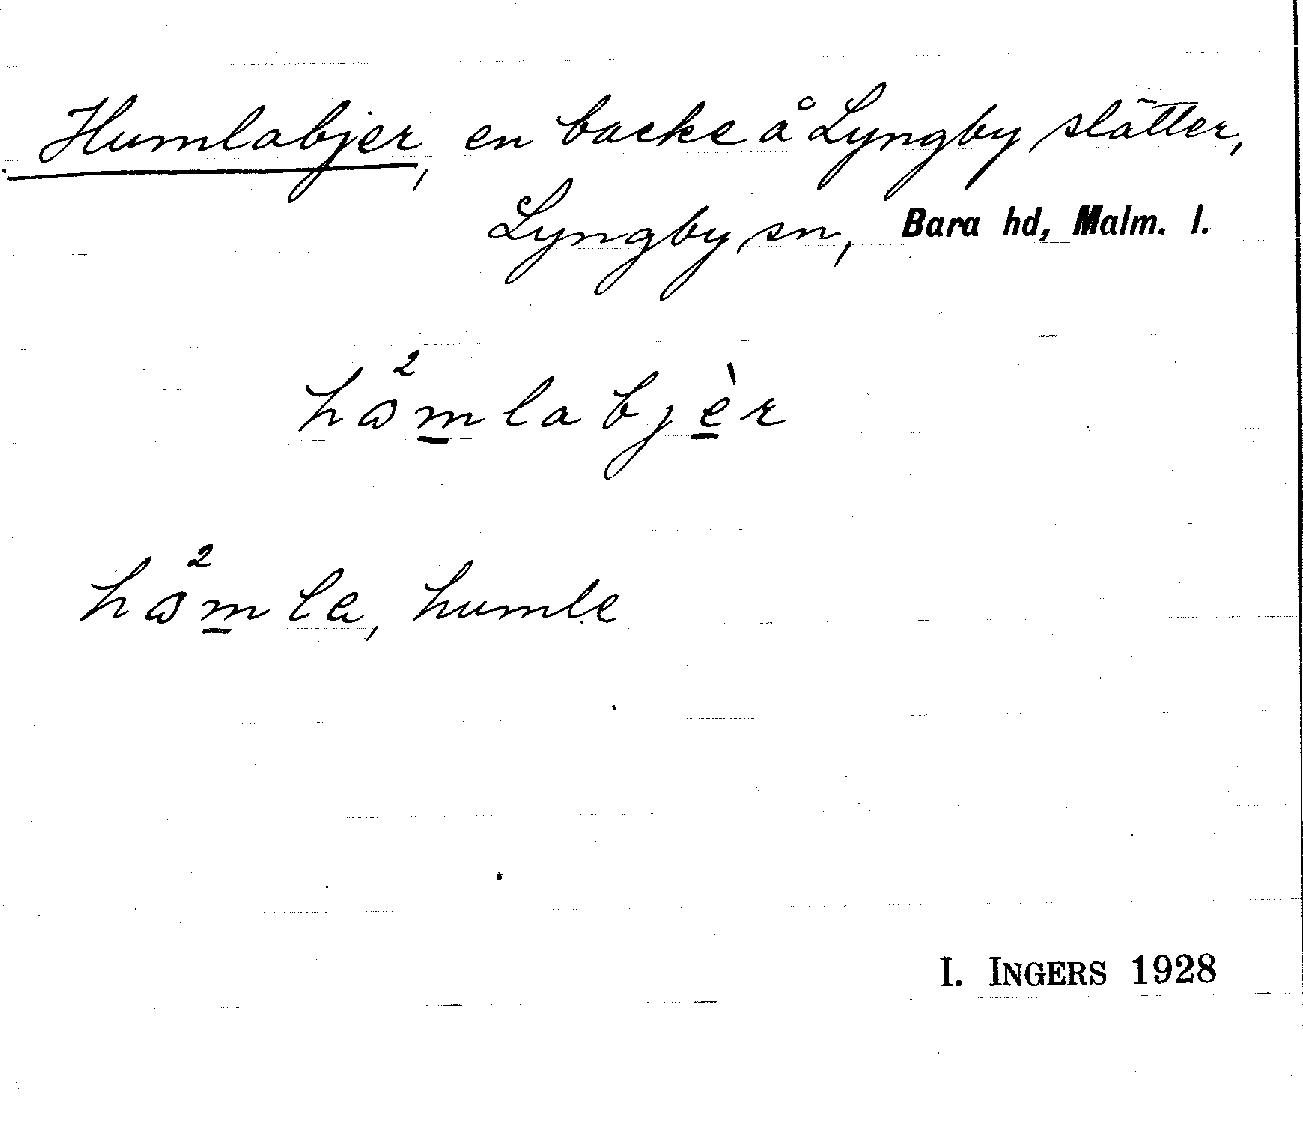 Humlabjer, en backe å Lyngby slätter,
Lyngby sn, Bara hd, Malm. l.
hå²mlabjèr
hå²mla, humle
I. INGERS 1928